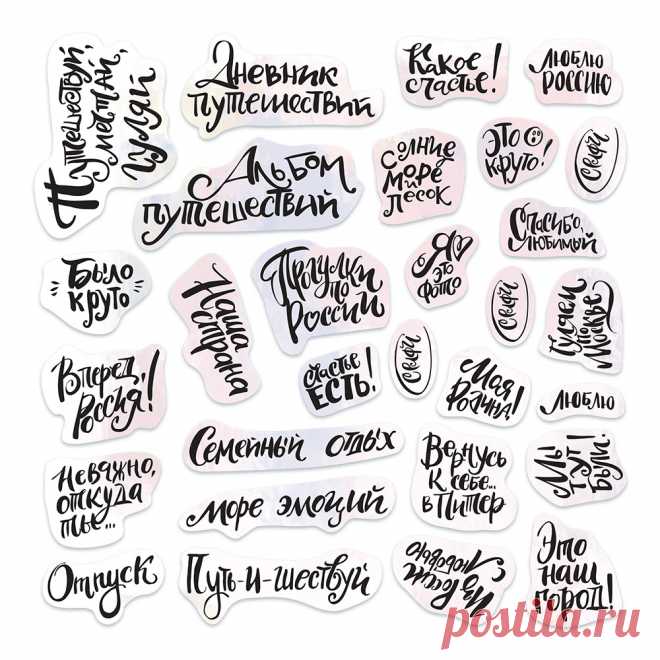 Путешествуй,
мечтай,
гуляй
Дневник
путешествий
Какое
счастье!
Люблю
Россию
Альбом
путешествий
Солнце
море и
песок
Это
круто!
Спасибо,
любимый
Было
круто
Наша
страна
Прогулки
по
России
Я
это
фото
Гуляем
по
Москве
Вперёд,
Россия!
Счастье
есть!
Моя
Родина!
Люблю
Семейный отдых
Неважно,
откуда
ты...
море эмоций
Вернусь
к себе...
в Питер
Мы
тут
были!
Отпуск
Путь-и-шествуй
с Любовью
Это
наш
город!
postila.ru